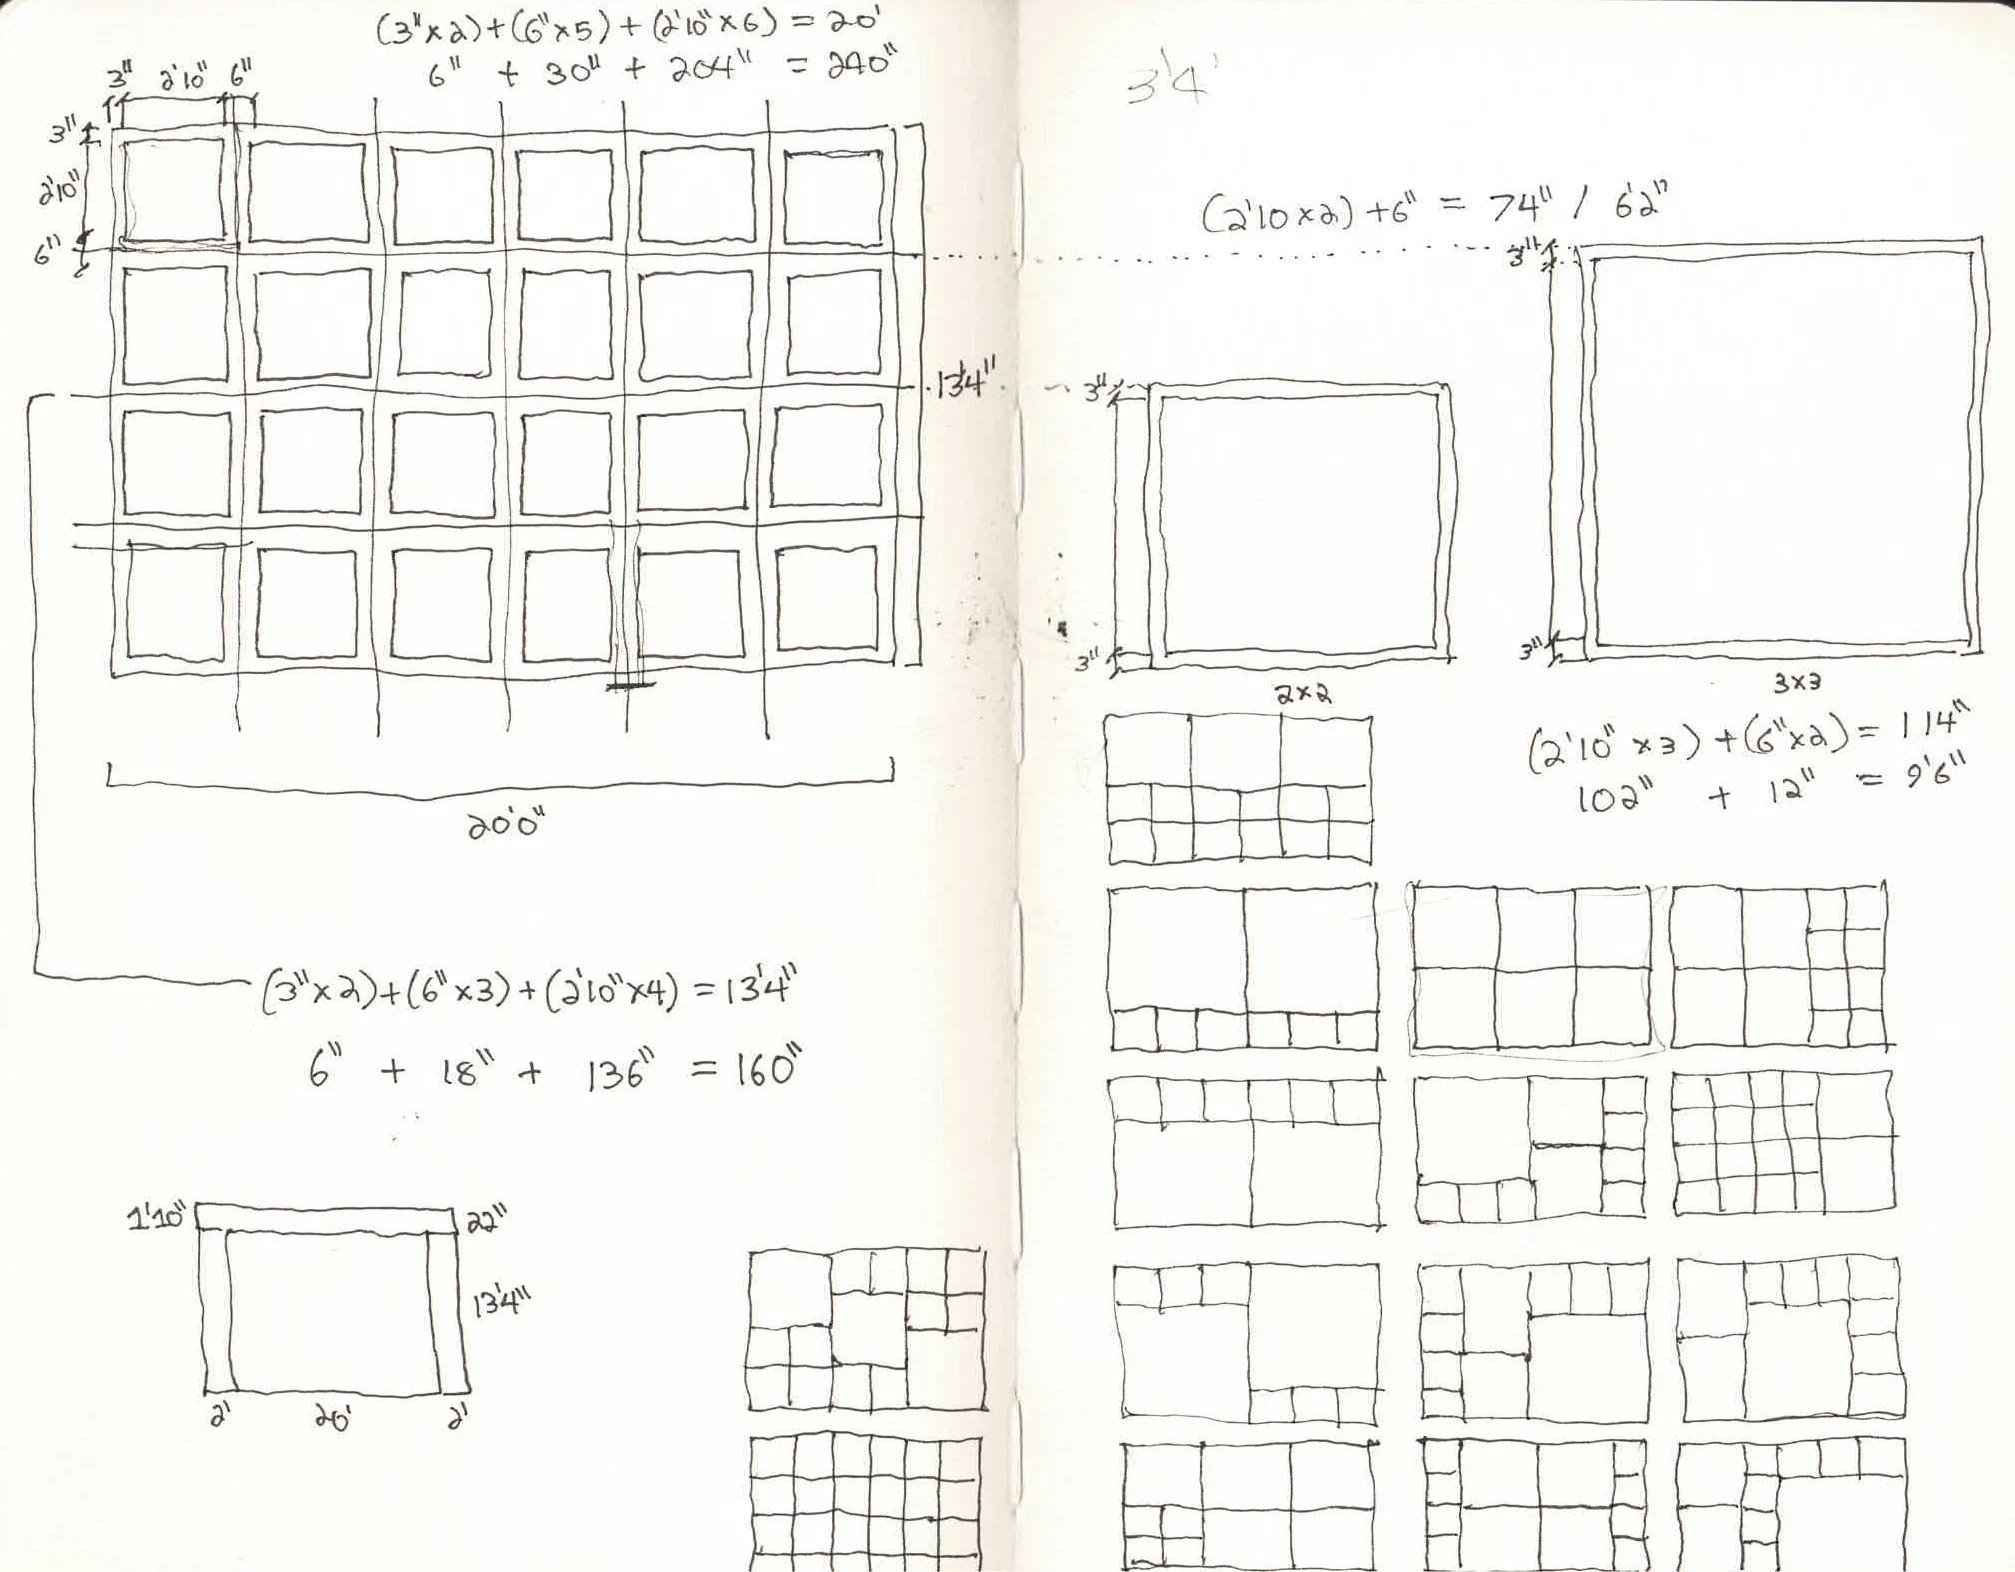 (3"x2)+(6"x5)+(2'10"x6) = 20'
6" + 30" + 204" = 240"
3" 2'10" 6"
3"
2'10"
6"
13'4"
20'0"
(3"x2)+(6"x3)+(2'10"x4) = 13'4"
6" + 18" + 136" = 160"
1'10" 22"
13'4"
2' 20' 2'
3'4'
(2'10x2)+6" = 74" / 6'2"
3"
3"
3"
3"
2x2
3x3
(2'10"x3)+(6"x2) = 114"
102" + 12" = 9'6"